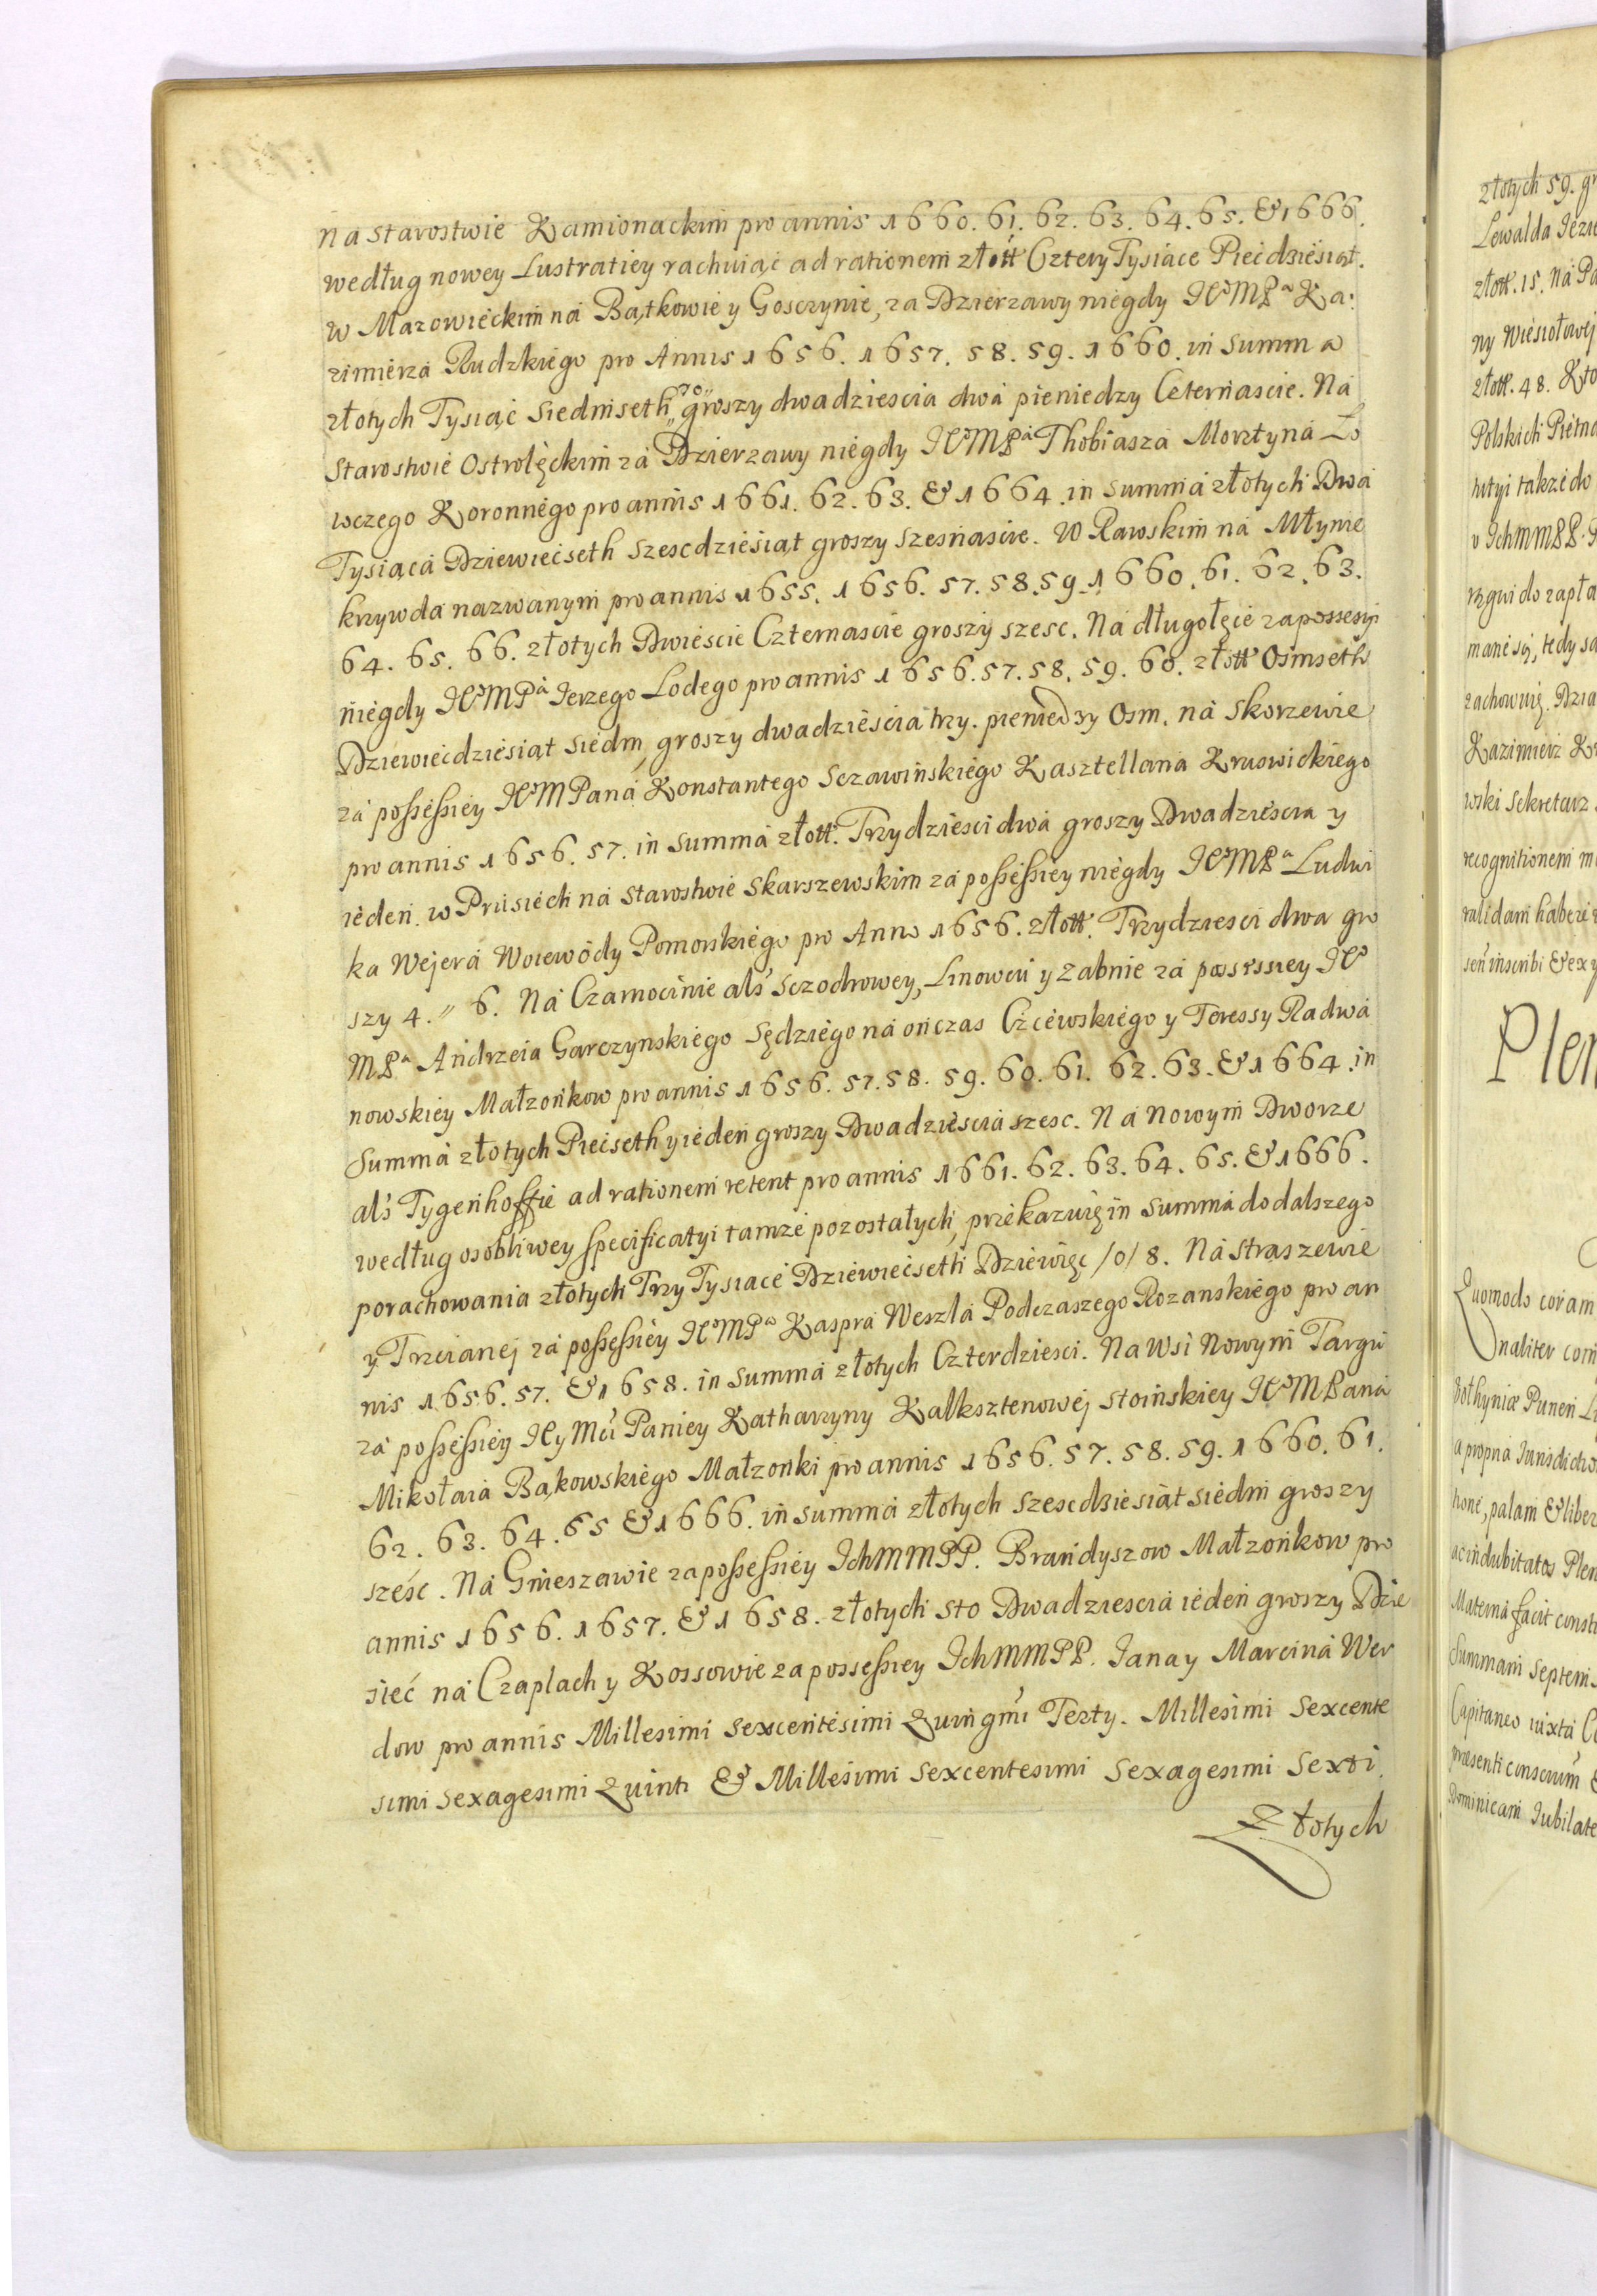 na starostwie Kamionackim pro annis 1660. 61. 62. 63. 64. 65. & 1666.
według nowey Lustratiey rachuiąc ad rationem złott Cztery Tysiące Piećdziesiąt.
w Mazowieckim na Bątkowie y Gosczynie, za Dzierzawy niegdy JeoMPa Ka:
zimierza Rudzkiego pro Annis 1656. 1657. 58. 59. 1660. in Summa
złotych Tysiąc Siedmseth 70 groszy dwadziescia dwa pieniedzy Czternascie. Na
Starostwie Ostrolęckim za Dzierzawy niegdy JeoMPa Thobiasza Morztyna Lo
wczego Koronnego pro annis 1661. 62. 63. & 1664. in Summa złotych Dwa
Tysiąca Dziewiećseth szescdziesiąt groszy szesnascie. W Rawskim na Młynie
krzywda nazwanym pro annis 1655. 1656. 57. 58. 59. 1660. 61. 62. 63.
64. 65. 66. złotych Dwiescie Czternascie groszy szesc. Na długołęcie za possesyi
niegdy JeoMPa Jerzego Lodego pro annis 1656. 57. 58. 59. 60. złott Osmseth
Dziewiećdziesiąt siedm, groszy dwadziescia trzy. pieniedzy Osm. na Skorzewie
za possessiey JeoMPana Konstantego Sczawinskiego Kasztellana Kruswickiego
pro annis 1656. 57. in Summa złott. Trzydziesci dwa groszy Dwadziescia y
ieden. w Prusiech na Starostwie Skarszewskim za possessiey niegdy JeoMPa Ludwi
ka Wejera Woiewody Pomorskiego pro Anno 1656. złott. Trzydziesci dwa gro
szy 4. " 6. Na Czarnocinie als Sczodrowey, Linowcu y Zabnie za possessiey Jeo
MPa Andrzeia Garczynskiego Sędziego na ończas Czcewskiego y Teressy Radwa
nowskiey Małzonkow pro annis 1656. 57. 58. 59. 60. 61. 62. 63. & 1664. in
Summa złotych Piećseth y ieden groszy Dwadziescia szesc. Na Nowym Dworze
als Tygenhoffie ad rationem retent pro annis 1661. 62. 63. 64. 65. & 1666.
według osobliwey specificatyi tamze pozostałych, przekazuię in Summa do dalszego
porachowania złotych Trzy Tysiące Dziewiećseth Dziewięc /0/ 8. Na Straszewie
y Trzcianej za possessiey JeoMPa Kaspra Weszla Podczaszego Rozanskiego pro an
nis 1656. 57. & 1658. in Summa złotych Czterdziesci. Na Wsi Nowym Targu
za possessiey Jey Mci Paniey Katharzyny Kalksztenowej Stoinskiey JeoMPana
Mikołaia Bąkowskiego Małzonki pro annis 1656. 57. 58. 59. 1660. 61.
62. 63. 64. 65 & 1666. in Summa złotych szescdziesiąt siedm groszy
szesc. Na Gnieszawie za possessiey JchMMPP. Brandyszow Małzonkow pro
annis 1656. 1657. & 1658. złotych sto Dwadziescia ieden groszy Dzie
sieć na Czaplach y Kossowie za possessiey JchMMPP. Jana y Marcina Wer
dow pro annis Millesimi Sexcentesimi Quingmi Terty. Millesimi Sexcente
simi Sexagesimi Quinti & Millesimi Sexcentesimi Sexagesimi Sexti.
Złotych
złotych 59. gr
Lewalda
złott. 15. Na
ny Wiesiołowej
złott. 48.
Polskich
także do
v JchMMPP.
do zapła
tedy
zachowuię.
Kazimierz
wski Sekretarz
recognitionem
validam habere
inscribi & ex
Plen
Quomodo coram
naliter com
a propria
palam & liber
ac indubitatos Plen
Materna facit consti
Summam Septem
Capitaneo iuxta
Dominicam Jubilate